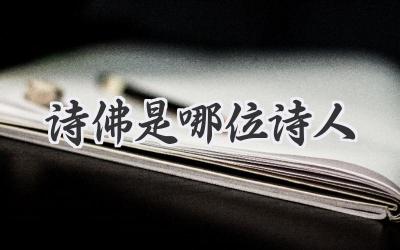 诗佛是哪位诗人